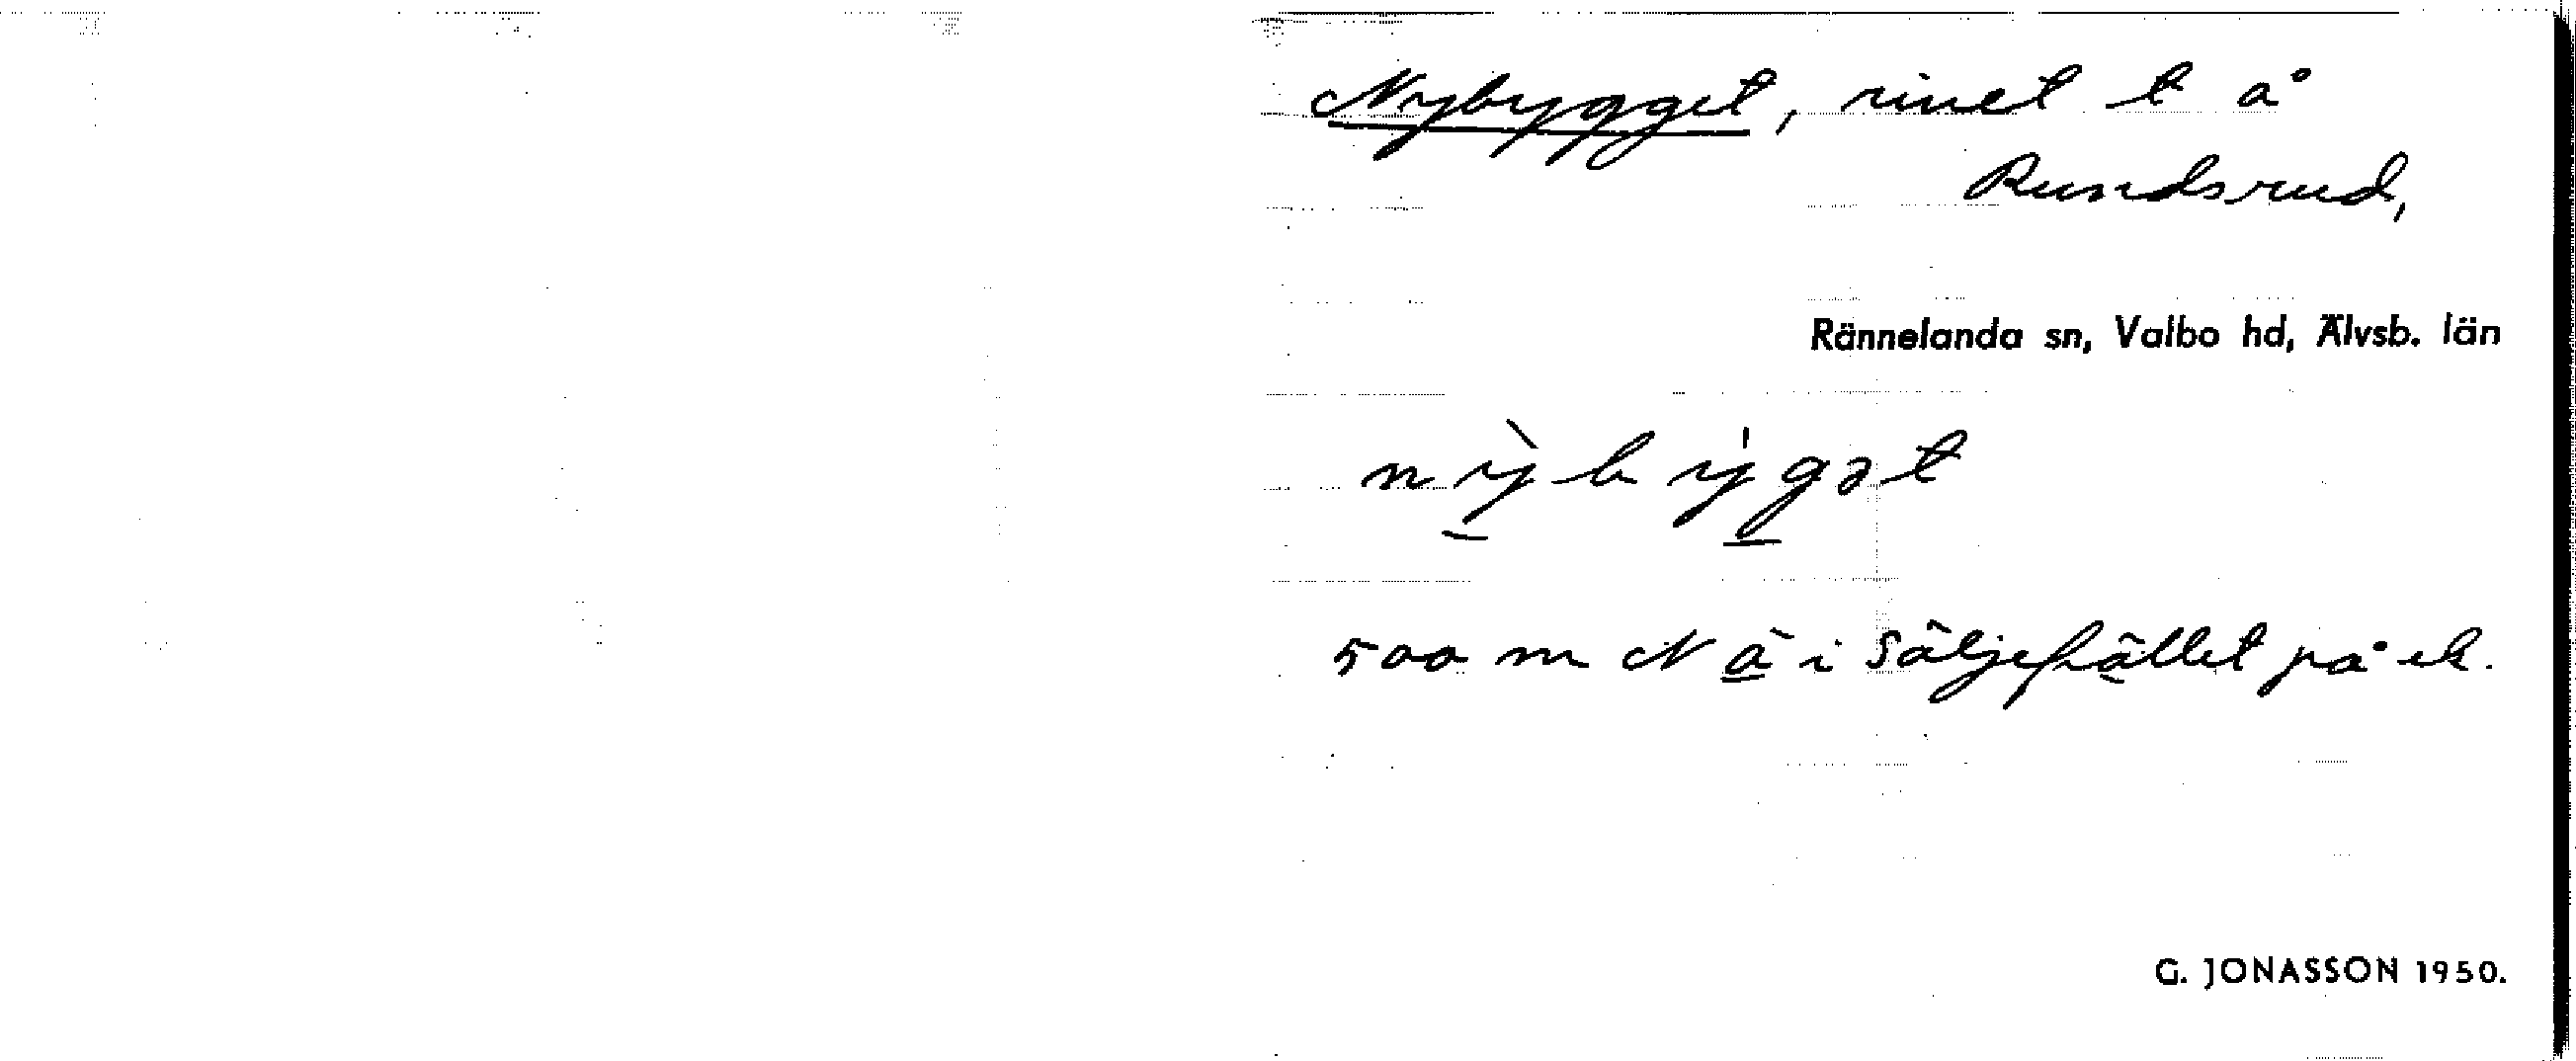 Nybygget, rivet t å
Rundsrud,
Rännelanda sn, Valbo hd, Älvsb. län
nỳbýgət
500 m N ä i Säljefället på ek.
G. JONASSON 1950.